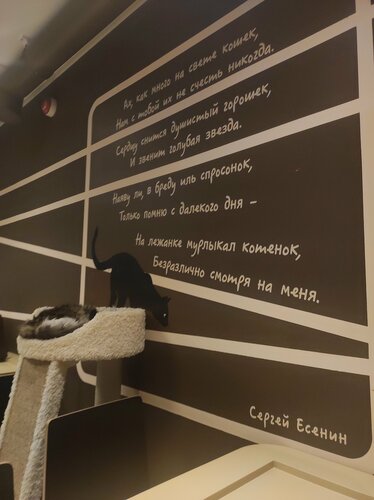 Ах, как много на свете кошек,
Нам с тобой их не счесть никогда.
Сердцу снится душистый горошек,
И звенит голубая звезда.
Наяву ли, в бреду иль спросонок,
Только помню с далекого дня –
На лежанке мурлыкал котенок,
Безразлично смотря на меня.
Сергей Есенин